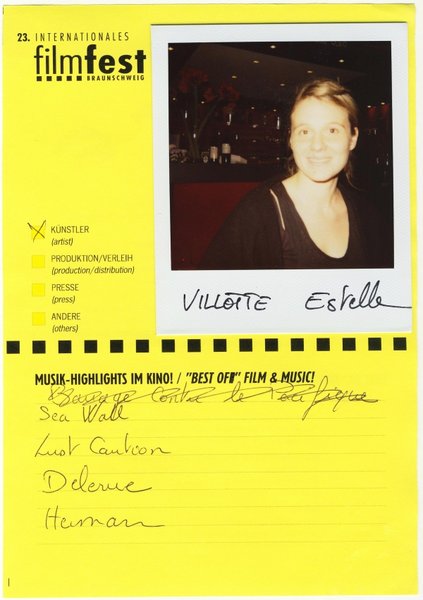 23. INTERNATIONALES
filmfest
BRAUNSCHWEIG
VILLOTTE Estelle
KÜNSTLER
(artist)
PRODUKTION/VERLEIH
(production/distribution)
PRESSE
(press)
ANDERE
(others)
MUSIK-HIGHLIGHTS IM KINO! / "BEST OF!", FILM & MUSIC!
Barrage contre le Pacifique
Sea Wall
Lust Caution
Delerue
Herman